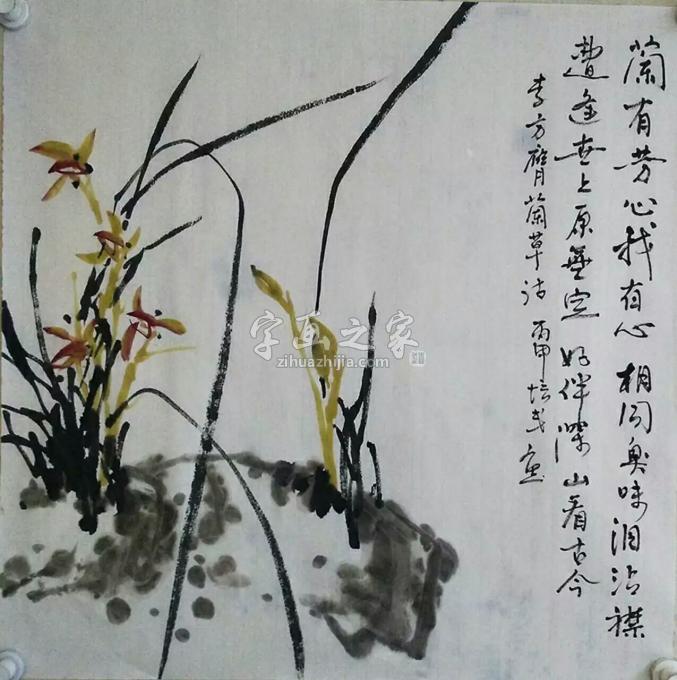 蘭有芳心我有心相同臭味泪沾襟
遭逢世上原無定好伴深山看古今
李方膺蘭草诗 丙申 培 画
字画之家
zihuazhijia.com